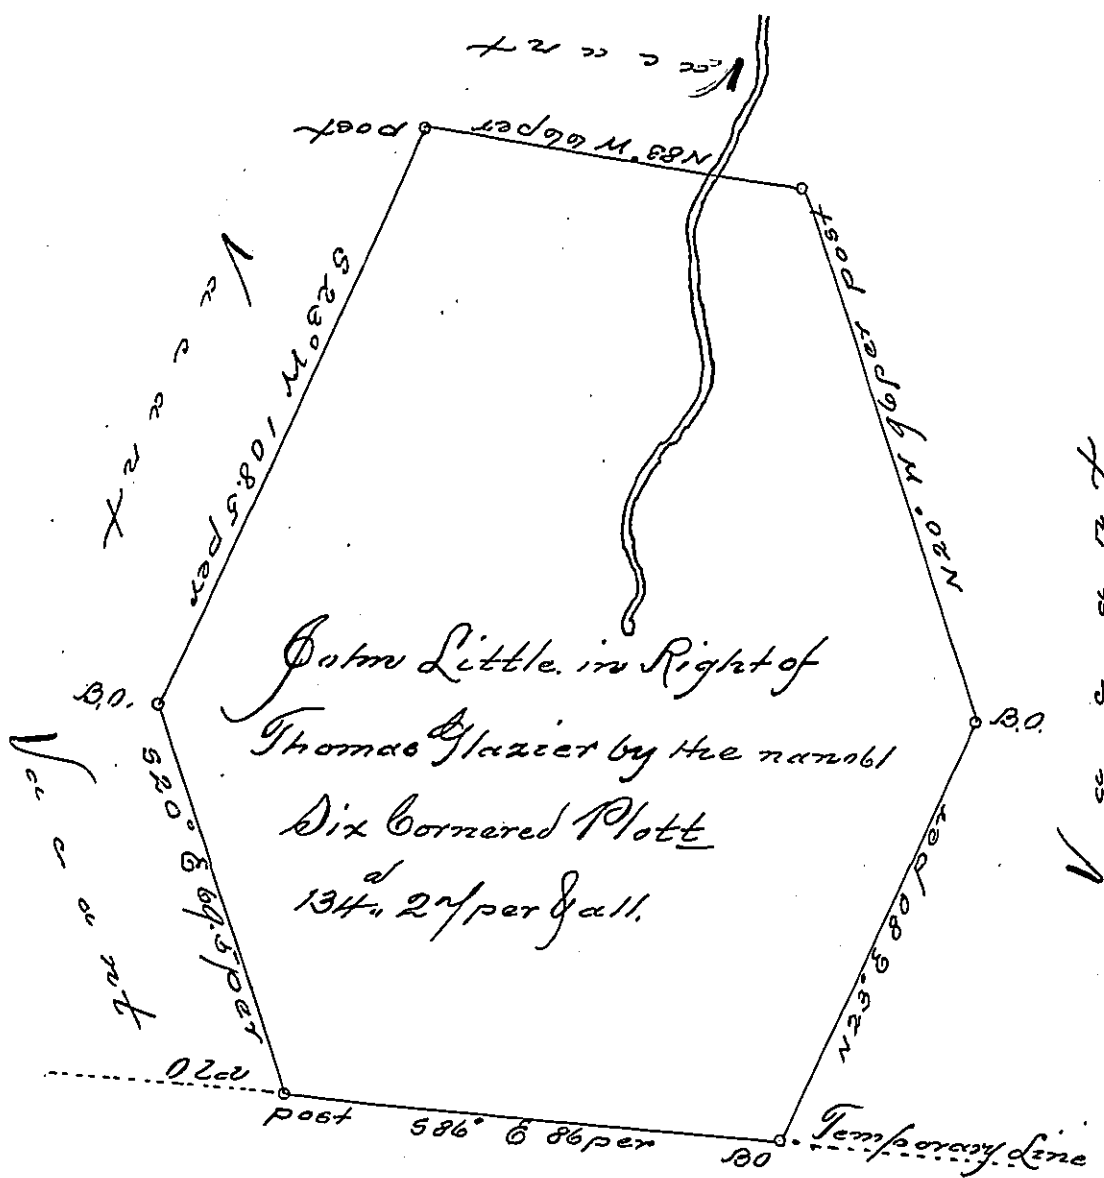 Vacant
post
N83° W 66 per
post
S23° W 108.5 per
N20° W 96 per
Vacant
Vacant
John Little. in Right of
Thomas Glazier by the name of
Six Cornered Plott
134a., 2 r/per & all.
B.O.
B.O.
Vacant
S20° E 69.5 per
N23° E 80 per
post
S86° E 86 per
BO
Temporary Line